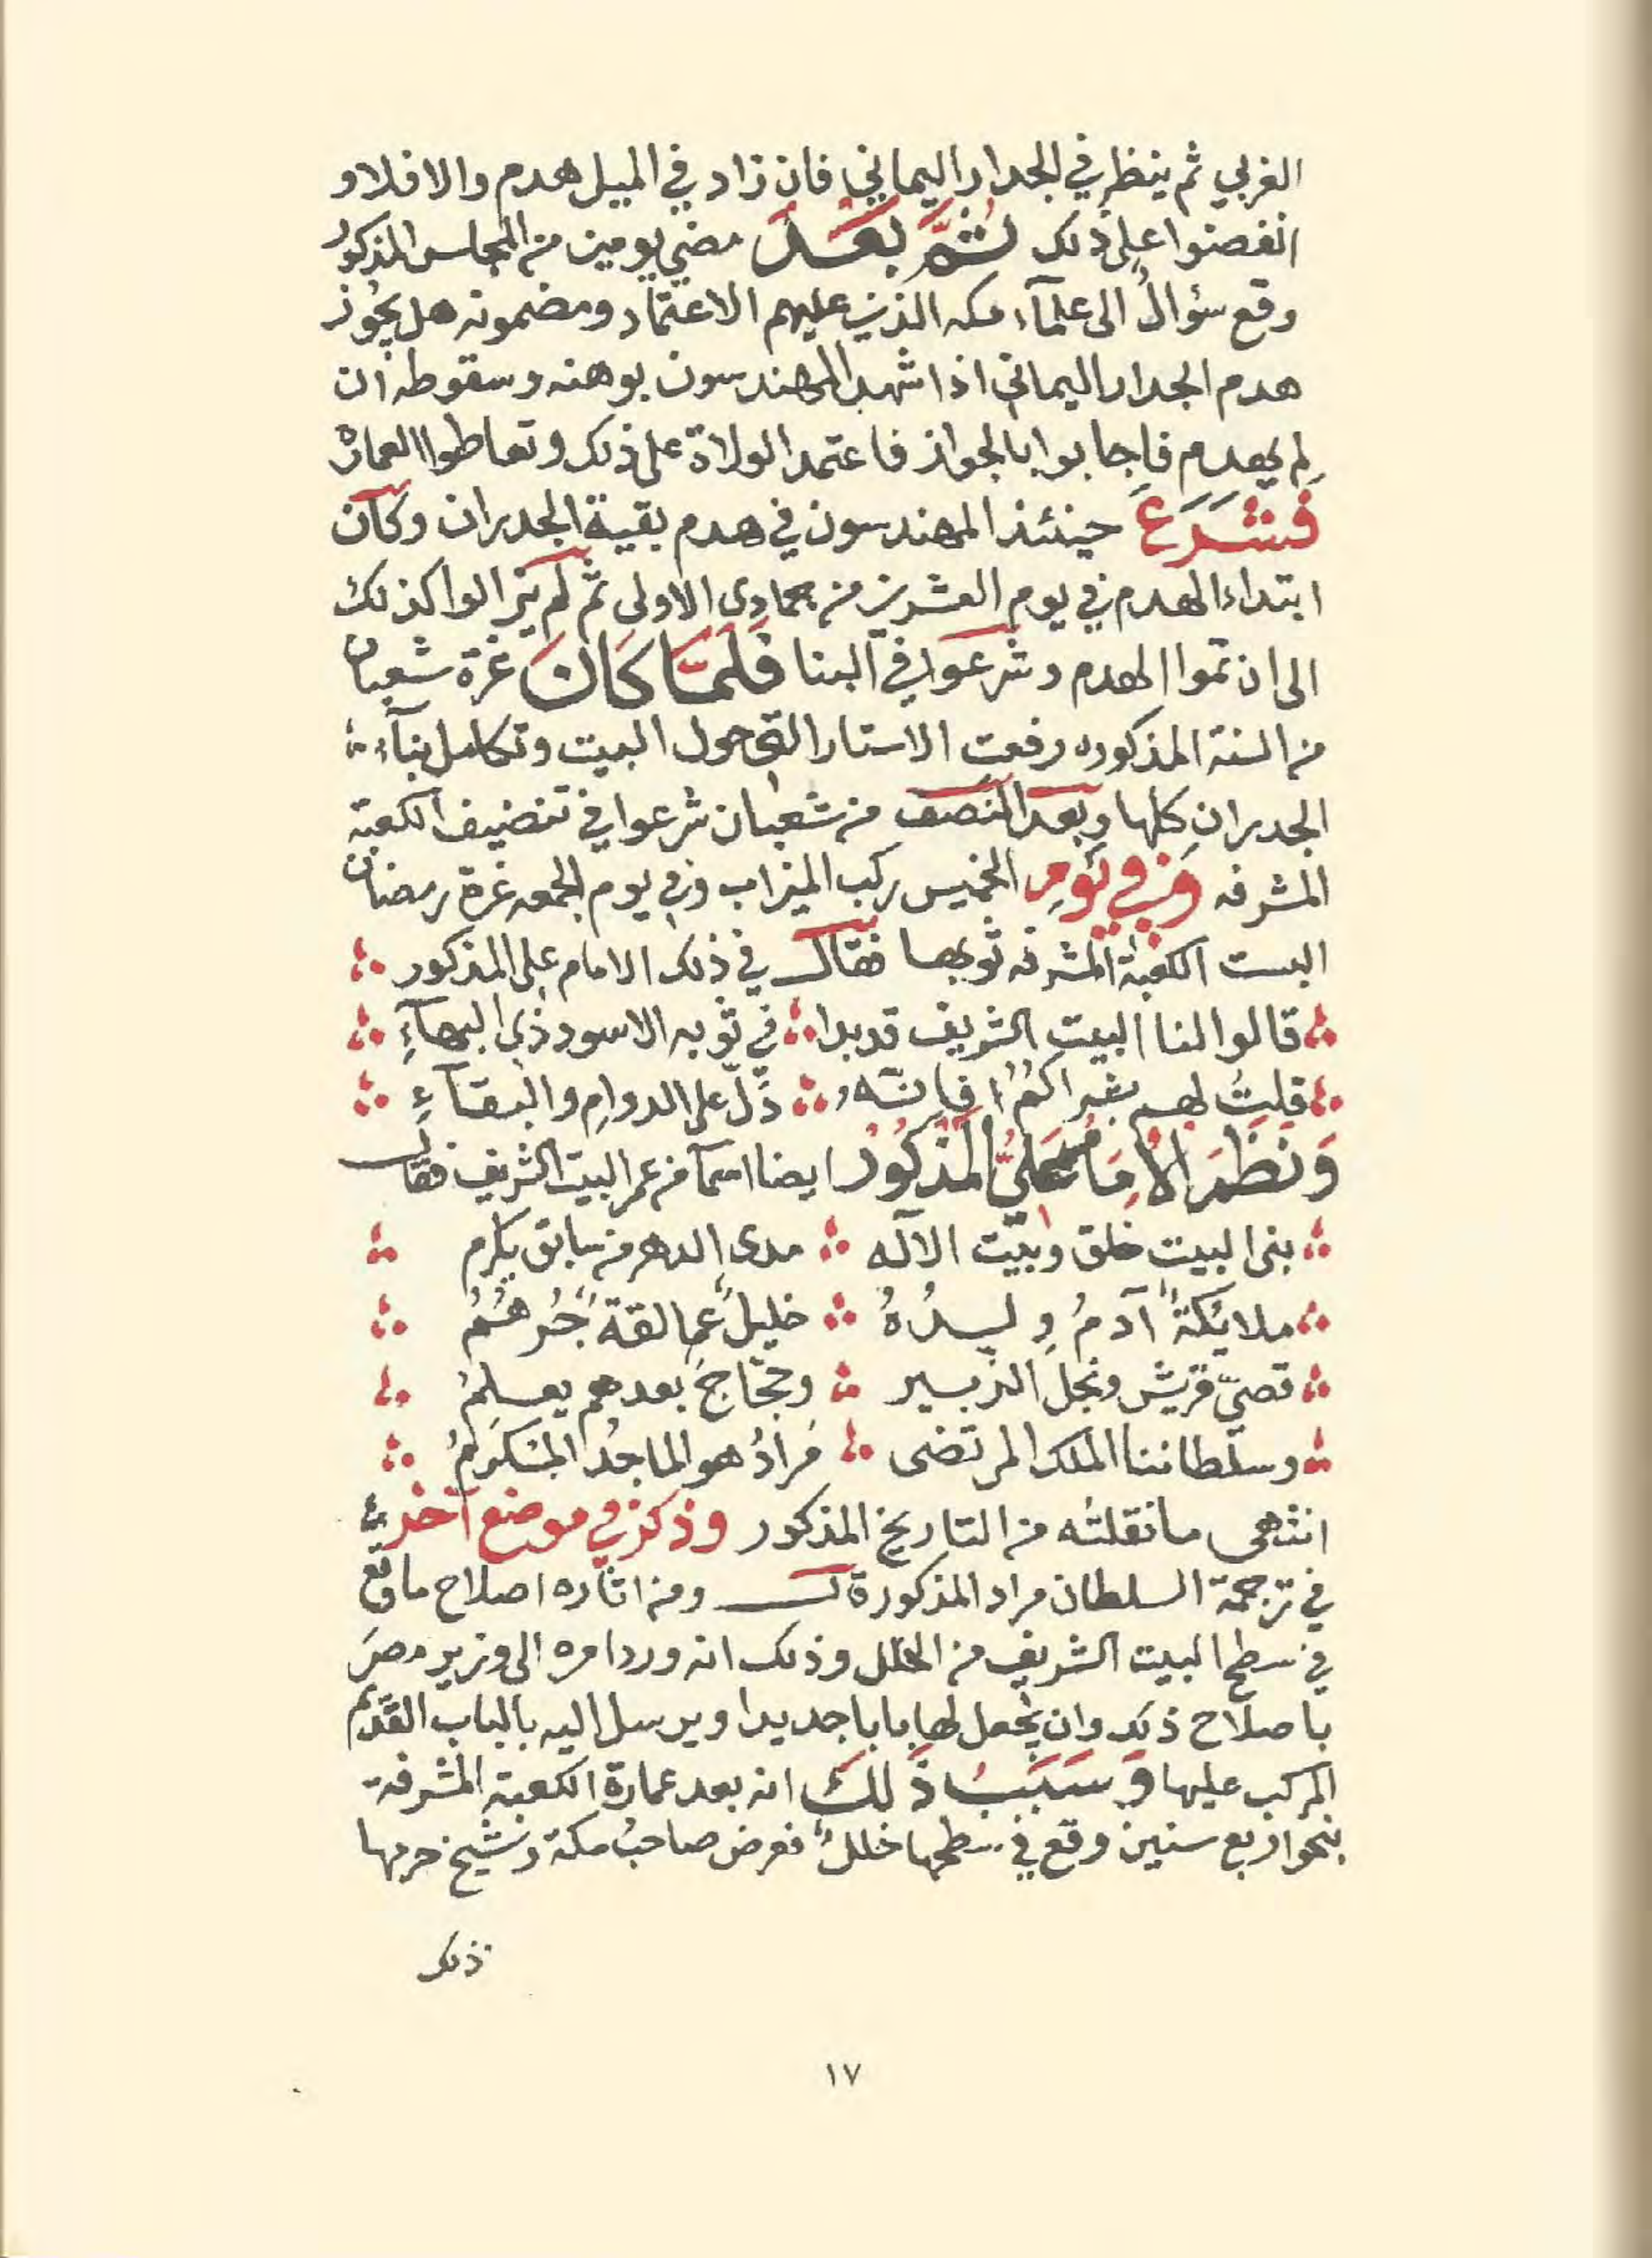 الغربي ثم ينظر في الجدار اليماني فان زاد في الميل هدم والا فلا و
انفصنوا على ذلك ثم بعد مضي يومين من المجلس المذكور
وقع سؤال الى علمآء مكه الذين عليهم الاعتماد ومضمونه هل يجوز
هدم الجدار اليماني اذا شهد المهندسون بوهنه وسقوطه ان
لم يهدم فاجابوا بالجواز فاعتمد الولاة على ذلك وتعاطوا العمارة
فشرع حينئذ المهندسون في هدم بقية الجدران وكان
ابتداء الهدم في يوم العشرين من جمادى الاولى ثم لم يزالوا كذلك
الى ان تموا الهدم وشرعوا في البنا فلمّا كان غرة شعبان
من السنة المذكوره رفعت الاستار التي حول البيت وتكامل بنآء
الجدران كلها وبعد النصف من شعبان شرعوا في تنضيف الكعبة
المشرفه وفي يوم الخميس ركب الميزاب وفي يوم الجمعه غرة رمضان
البست الكعبة المشرفه ثوبها فقال في ذلك الامام علي المذكور
قالوا لنا البيت الشريف قد بدا في ثوبه الاسود ذي البهآءِ
قلتُ لهم بشراكمُ فانه دَلّ على الدوامِ والبقآءِ
وَنَظَمَ الاِمَامُ عَليُّ المَذكُورُ ايضا اسمآ من عمر البيت الشريف فقال
بنى البيت خلق وبيت الآله مدى الدهر من سابق يكرم
ملائكةٌ آدمُ ولدُهُ خليلٌ عمالقةٌ جُرهُمُ
قصيّ قريش ونجل الزبير وحجّاج بعدهم يعلمُ
وسلطاننا الملك المرتضى مُرادُ هو الماجدُ المنكرمُ
انتهى ما نقلته من التاريخ المذكور وذكر في موضع آخر
في ترجمة السلطان مراد المذكور قال ومن اثاره اصلاح ما وقع
في سطح البيت الشريف من الخلل وذلك انه ورد امره الى وزير مصر
باصلاح ذلك وان يجعل لها بابا جديدا ويرسل اليه بالباب القديم
المركب عليها وَسَبَبُ ذَلِكَ انه بعد عمارة الكعبة المشرفة
بنحو اربع سنين وقع في سطحها خللٌ فعرض صاحبُ مكة وشيخ حرمها
ذلك
١٧